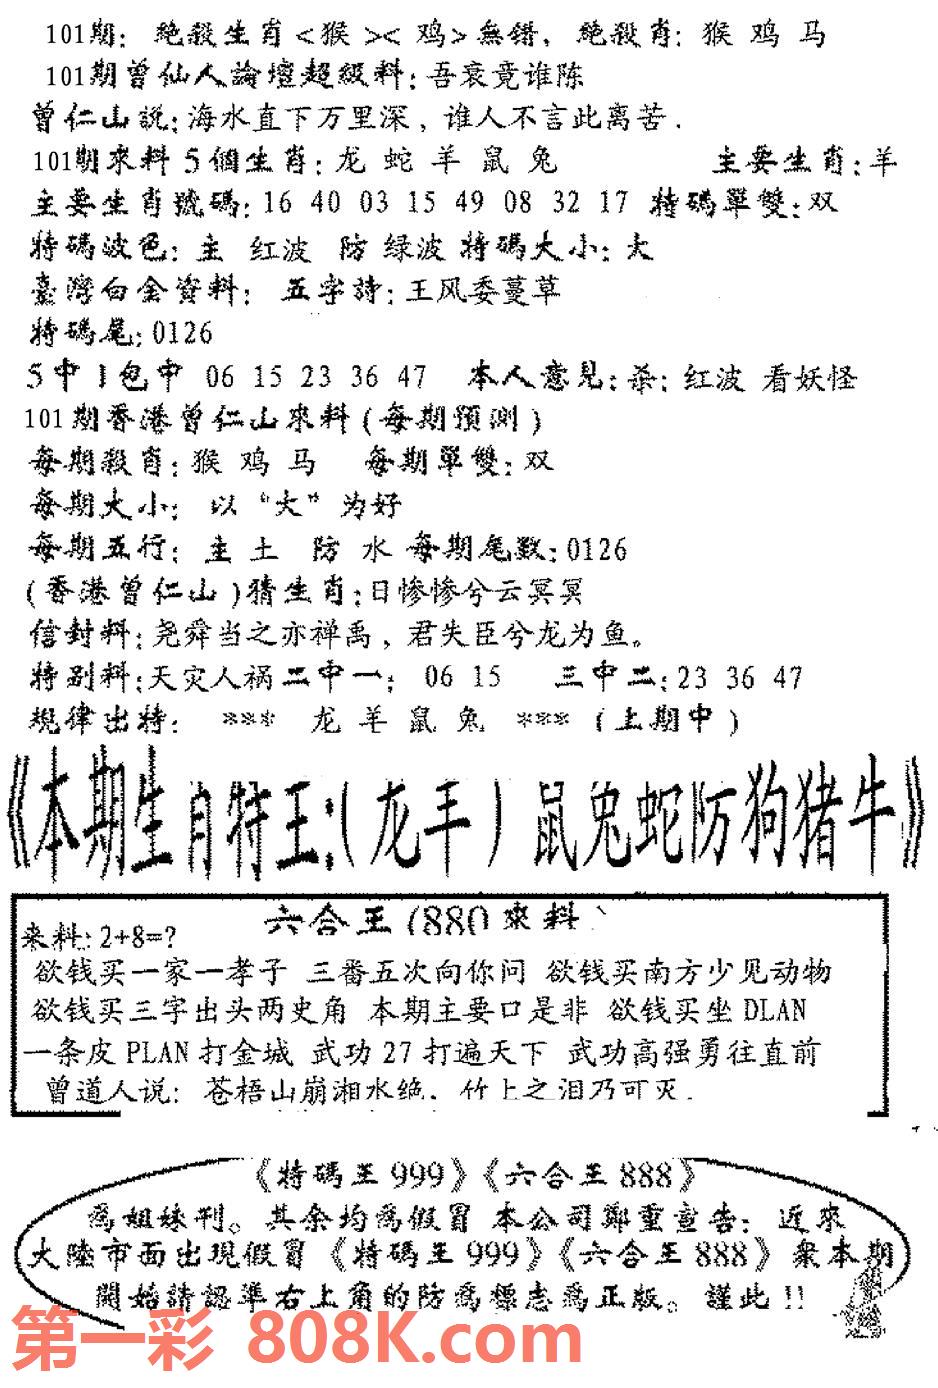 101期: 絶殺生肖<猴><鸡>無错, 絶殺肖: 猴 鸡 马
101期曾仙人論壇超級料:吾衰竟谁陈
曾仁山説:海水直下万里深, 谁人不言此离苦.
101期來料 5 個生肖: 龙 蛇 羊 鼠 兔 主要生肖:羊
主要生肖號碼:16 40 03 15 49 08 32 17 特碼單雙:双
特碼波色: 主 红波 防 绿波 特碼大小: 大
臺灣白金資料: 五字詩:王风委蔓草
特碼尾:0126
5 中 1 包中 06 15 23 36 47 本人意見:杀: 红波 看妖怪
101期香港曾仁山來料(每期預測)
每期殺肖:猴 鸡 马 每期單雙:双
每期大小: 以“大”为好
每期五行: 主 土 防 水 每期尾数:0126
(香港曾仁山)猜生肖:日惨惨兮云冥冥
信封料:尧舜当之亦禅禹, 君失臣兮龙为鱼。
特别料:天灾人祸二中一: 06 15 三中二:23 36 47
規律出特: *** 龙 羊 鼠 兔 *** (上期中)
《本期生肖特王:(龙羊)鼠兔蛇防狗猪牛》
六合王(880來料)
来料: 2+8=?
欲钱买一家一孝子 三番五次向你问 欲钱买南方少见动物
欲钱买三字出头两史角 本期主要口是非 欲钱买坐 DLAN
一条皮 PLAN 打金城 武功 27 打遍天下 武功高强勇往直前
曾道人说: 苍梧山崩湘水绝. 竹上之泪乃可灭.
《特碼王 999》《六合王 888》
爲姐妹刊。其余均爲假冒 本公司鄭重宣告: 近來
大陸市面出現假冒《特碼王 999》《六合王 888》衆本期
開始請認準右上角的防爲標志爲正版。謹此!!
第一彩 808K.com